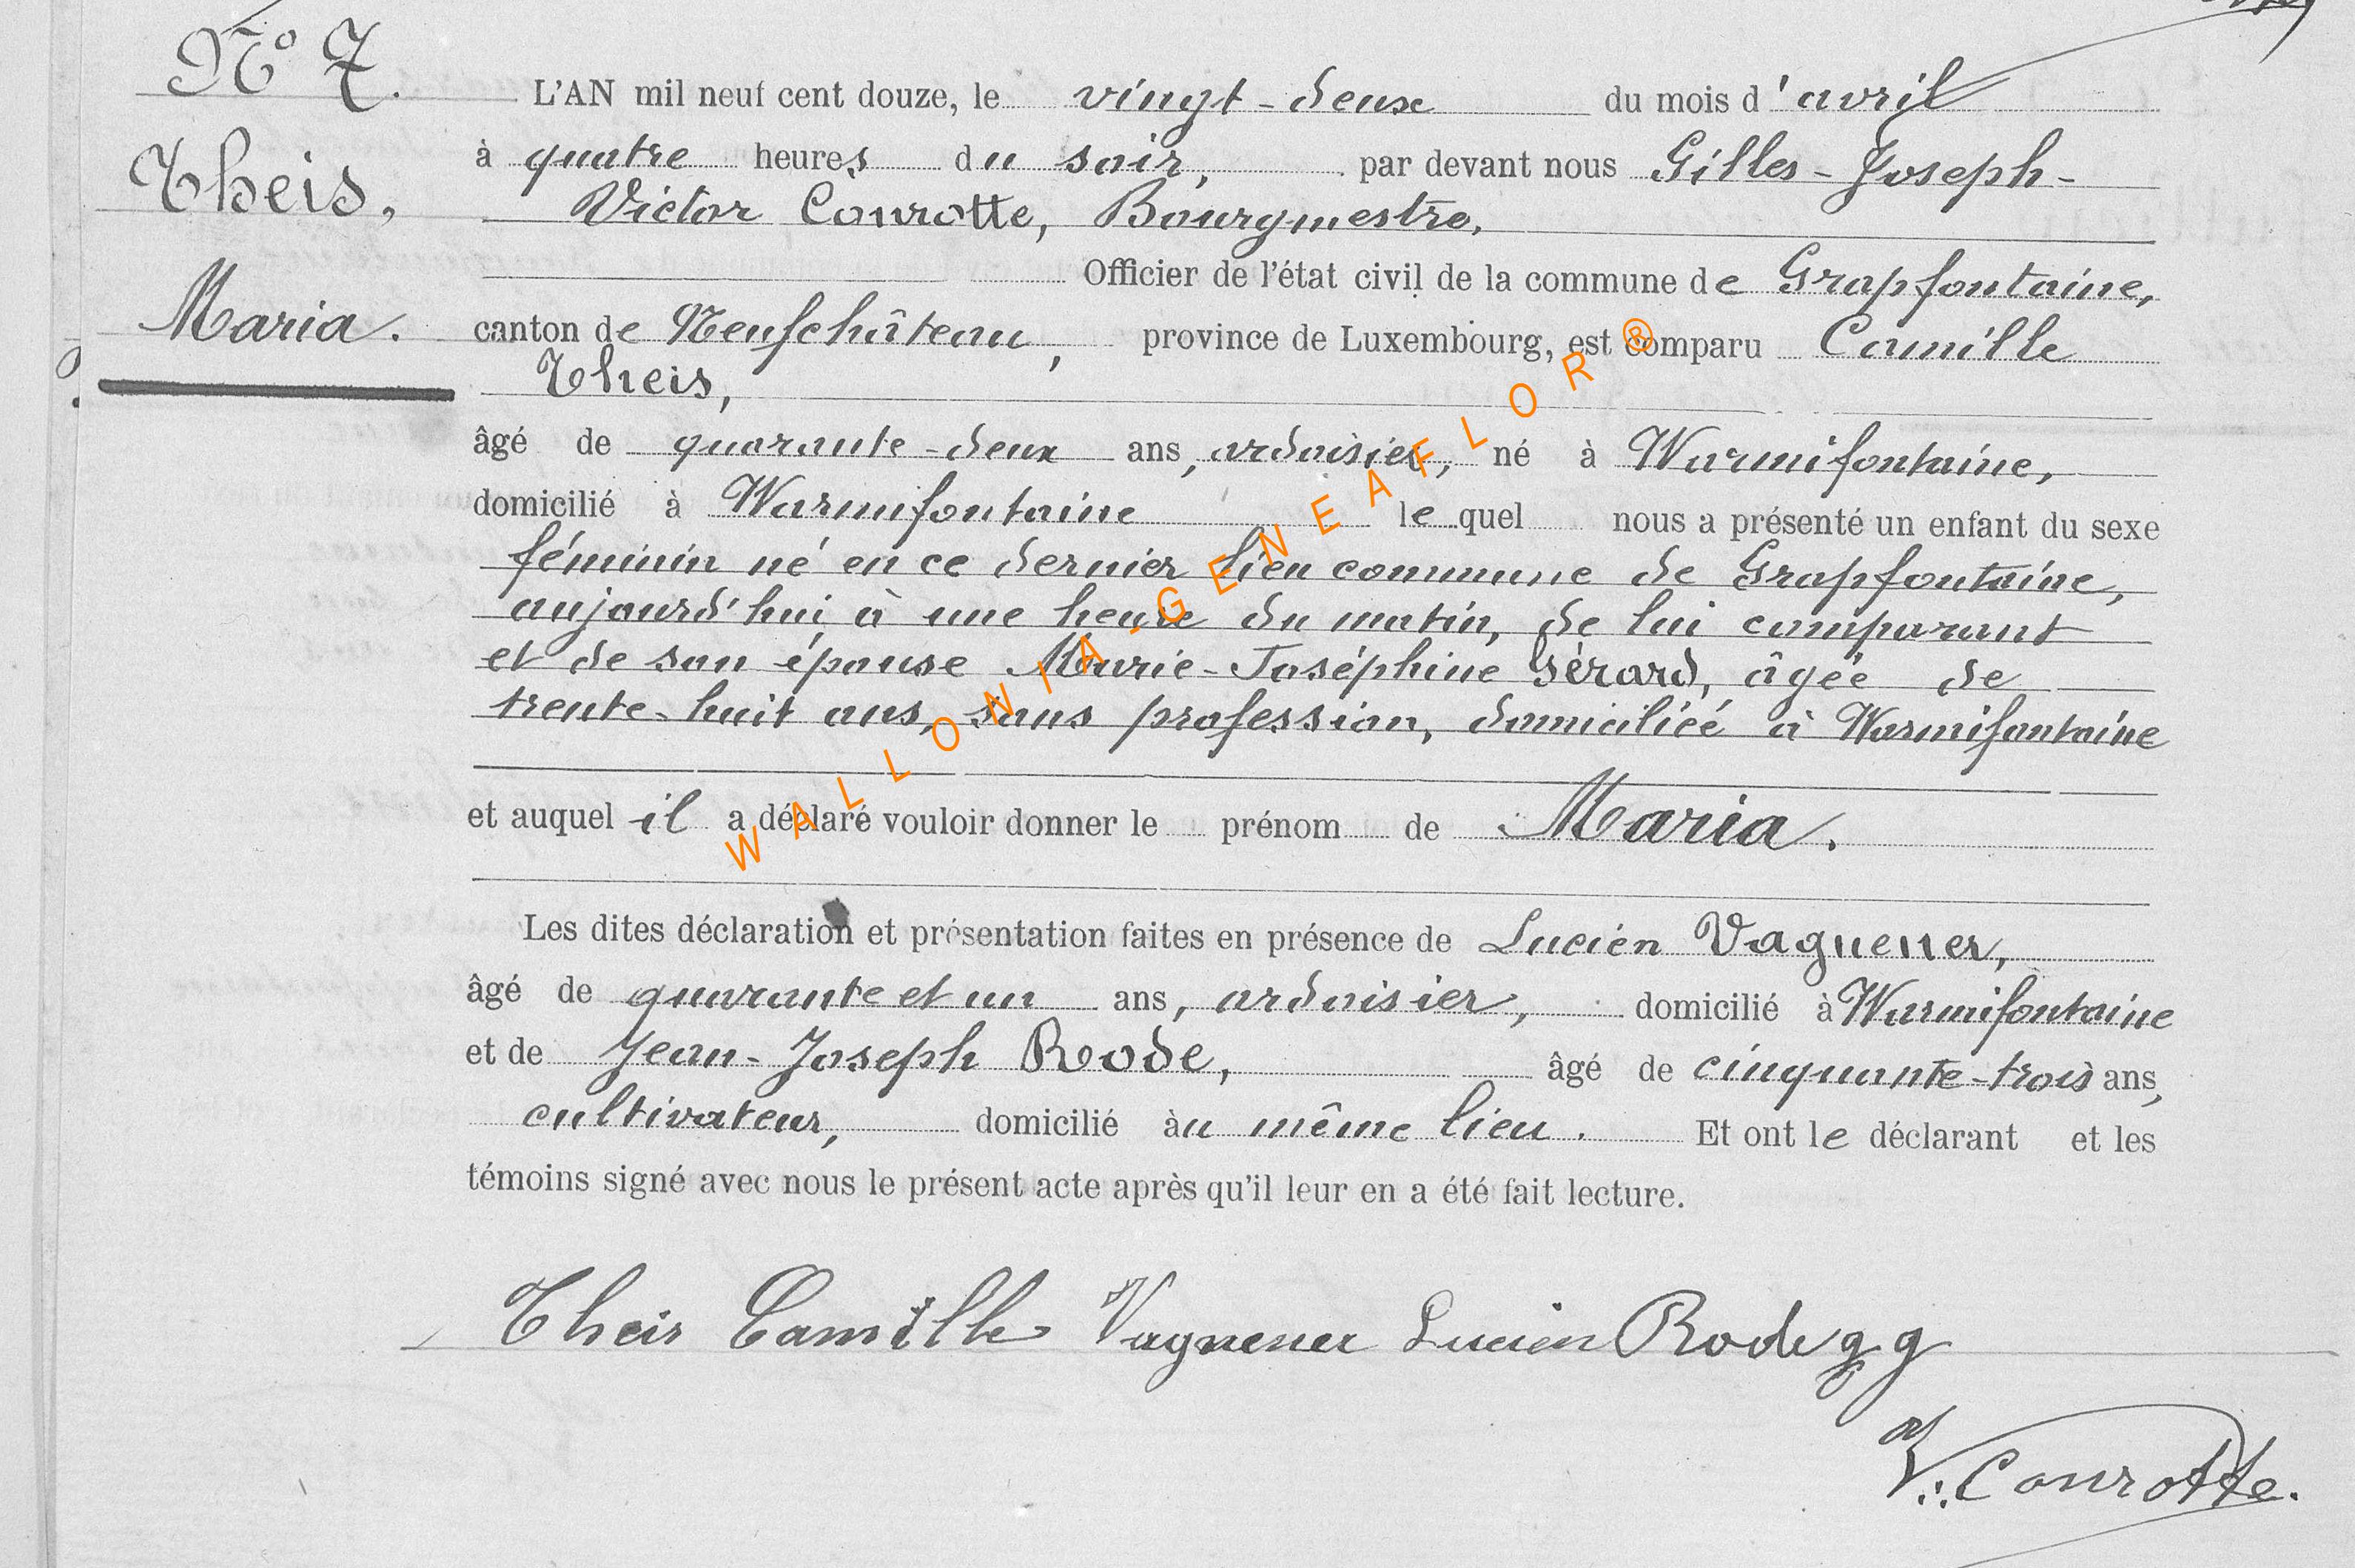 N° 7.
Theis,
Maria.
L'AN mil neuf cent douze, le vingt-deux du mois d'avril
à quatre heures du soir, par devant nous Gilles-Joseph-
Victor Conrotte, Bourgmestre,
Officier de l'état civil de la commune de Grapfontaine,
canton de Neufchâteau, province de Luxembourg, est comparu Camille
Theis,
âgé de quarante-deux ans, ardoisier, né à Warmifontaine,
domicilié à Warmifontaine lequel nous a présenté un enfant du sexe
féminin né en ce dernier lieu commune de Grapfontaine,
aujourd'hui à une heure du matin, de lui comparant
et de son épouse Marie-Joséphine Gérard, âgée de
trente-huit ans, sans profession, domiciliée à Warmifontaine
et auquel il a déclaré vouloir donner le prénom de Maria.
Les dites déclaration et présentation faites en présence de Lucien Vaguener,
âgé de quarante et un ans, ardoisier, domicilié à Warmifontaine
et de Jean-Joseph Rode, âgé de cinquante-trois ans,
cultivateur, domicilié àu même lieu. Et ont le déclarant et les
témoins signé avec nous le présent acte après qu'il leur en a été fait lecture.
Theis Camille Vaguener Lucien Rode gg
V. Conrotte.
WALLONIA-GENEAFLOR ®